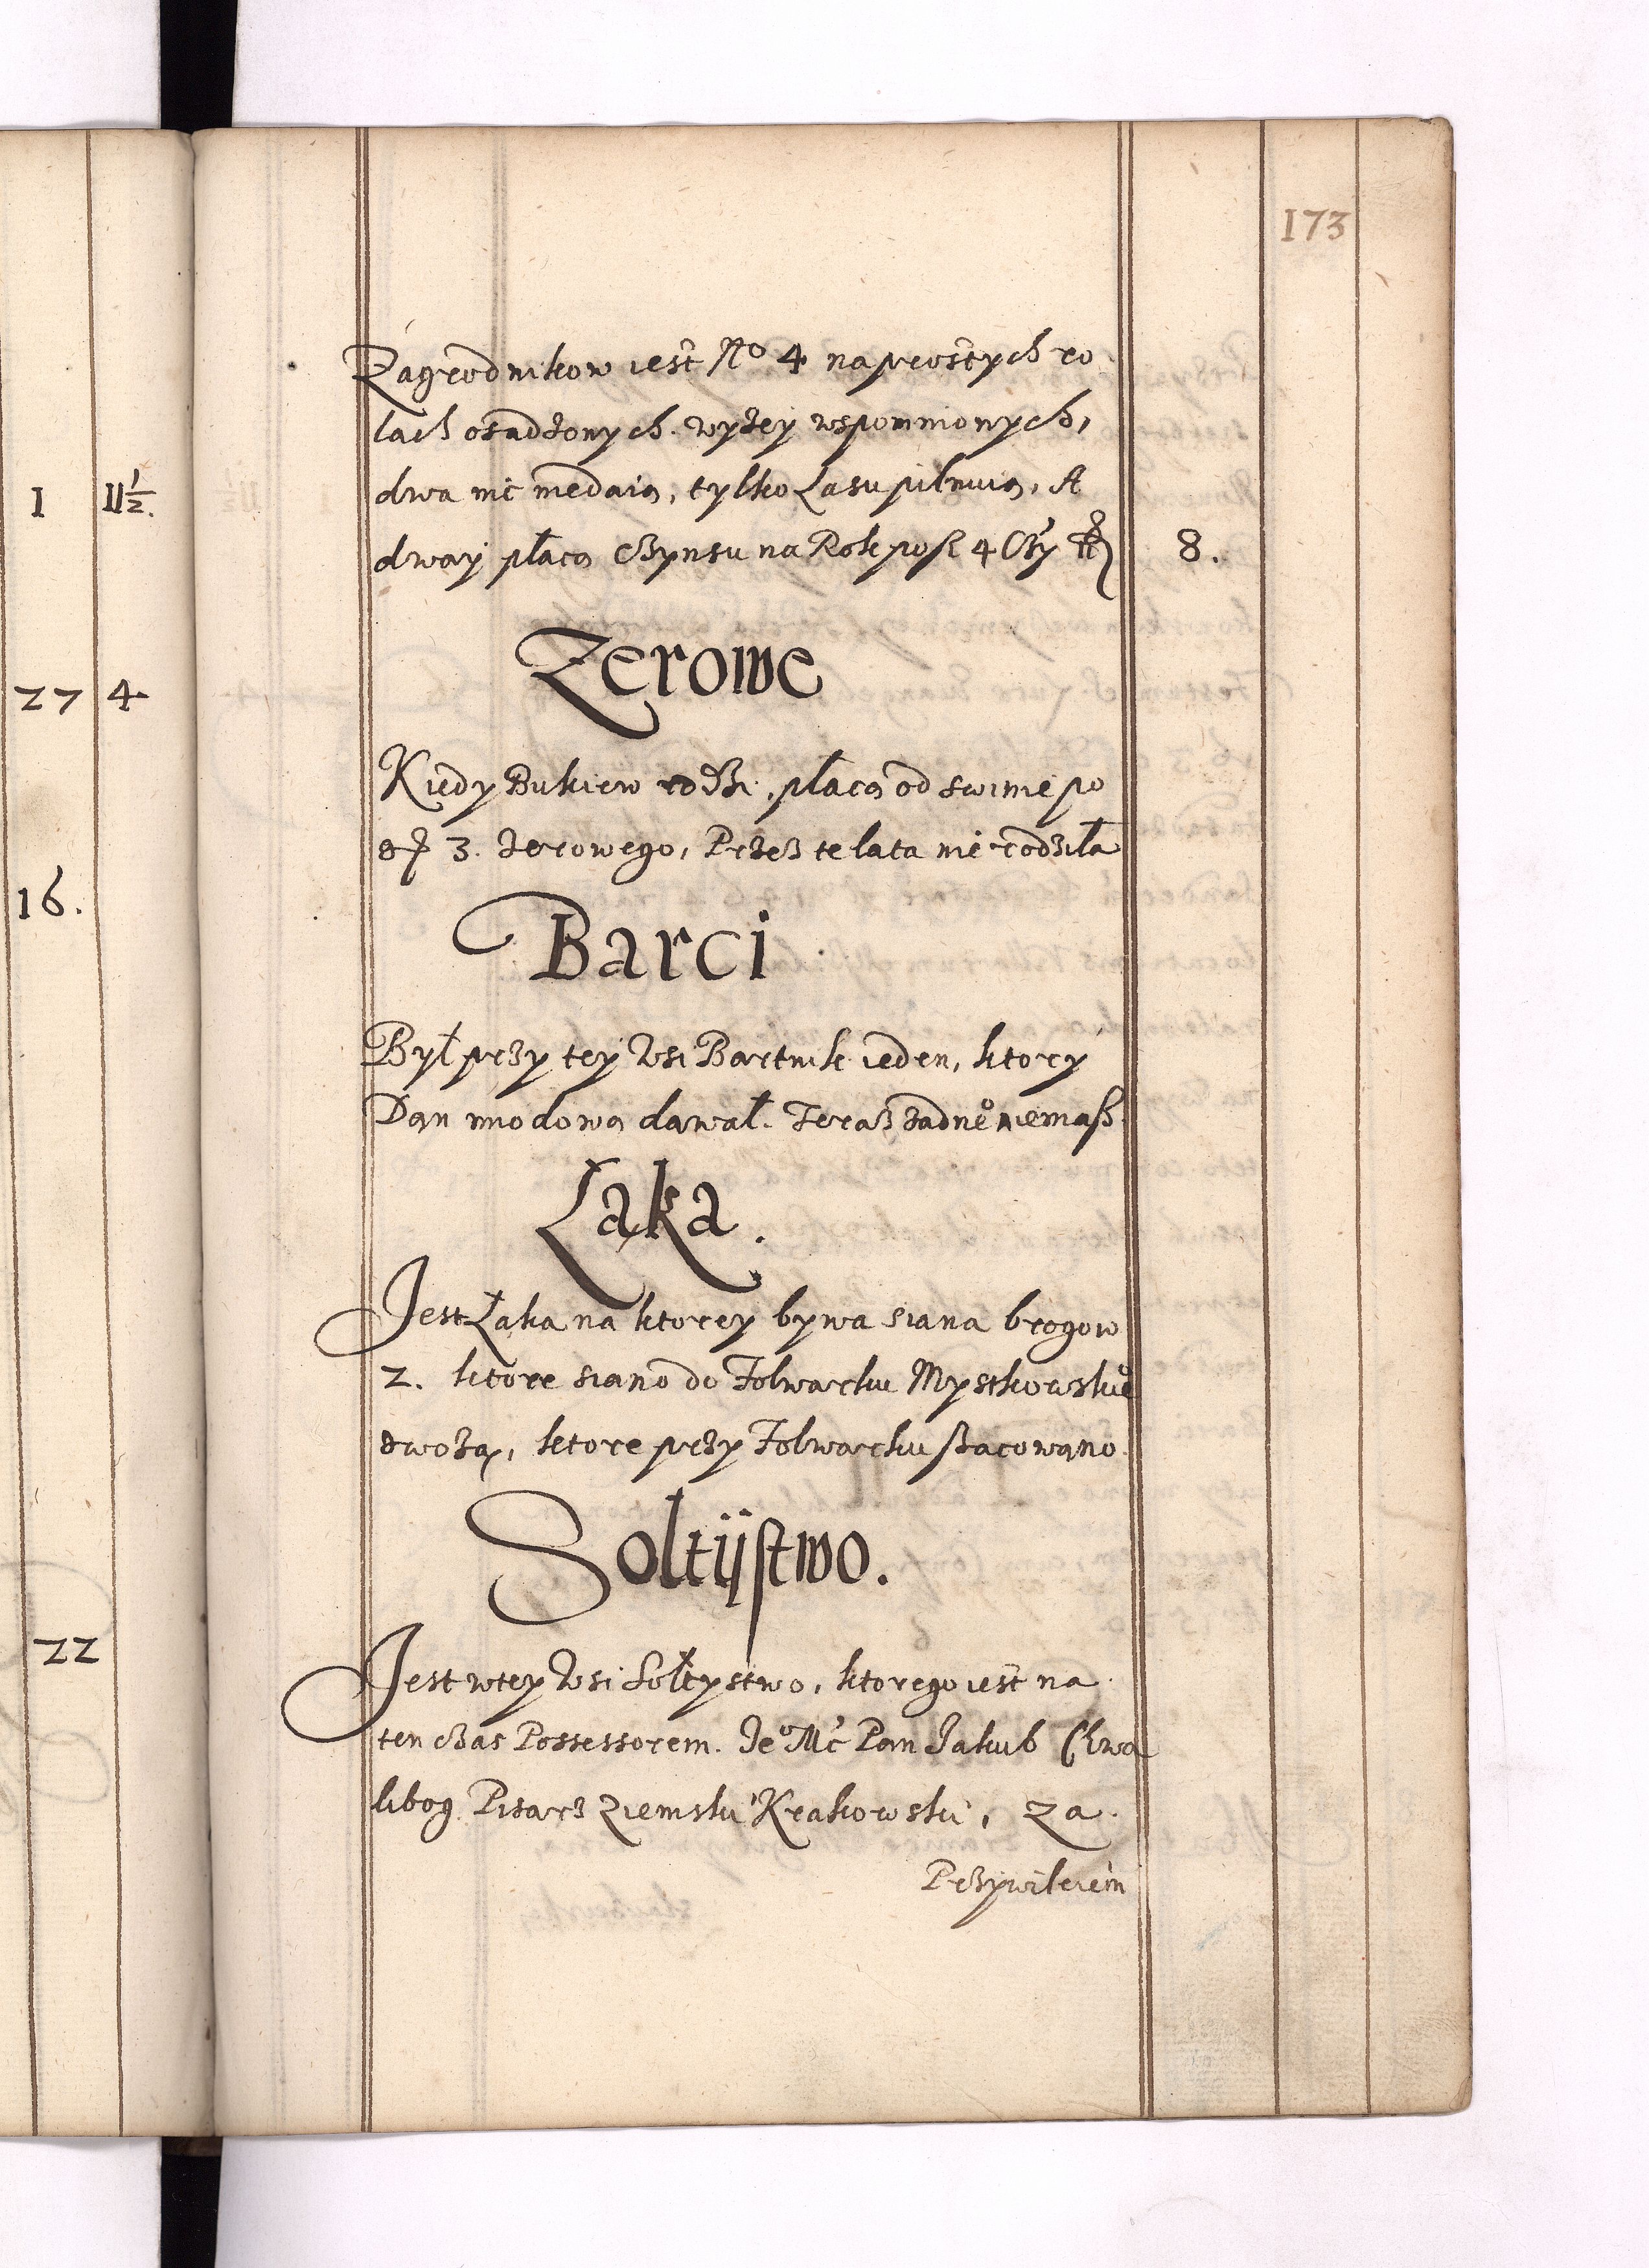 173
Zagrodnikow iest No 4 na prostych ro
lach osadzonych wyzey wspomnionych,
dwa nic niedaią, tylko Lasu pilnuią, A
dway płacą Czynsu na Rok po 4 Czy
8.
Zerowe
Kiedy Bukiew rodzi, płacą od swinie po
3. zerowego, Przez te lata nie rodziła
Barci
Był przy tey Wsi Bartnik ieden, ktory
Dan miodową dawał. Teraz zadneo niemasz.
Ląka.
Jest Łąka na ktorey bywa siana brogow
2. ktore siano do Folwarku Mystkowskieo
zwożą, ktore przy Folwarku szacowano.
Soltijstwo.
Jest w tey Wsi Sołtystwo, ktorego iest na
ten czas Possessorem. Jeo Mć Pan Jakub Chwa
libog Pisarz Ziemski Krakowski, za
Przywileiem
1 11½.
27 4
16.
22